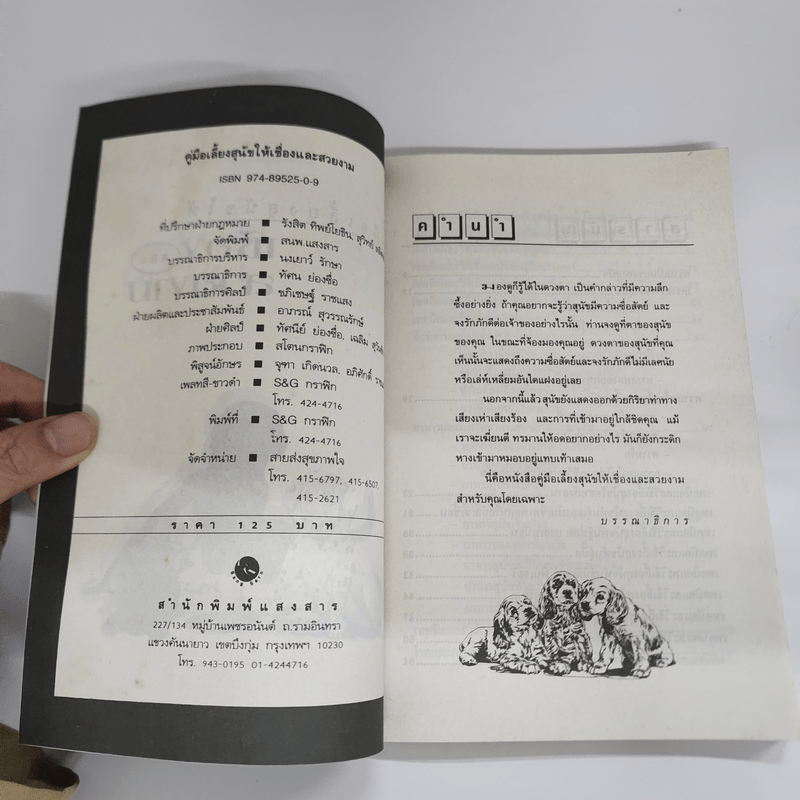 คู่มือเลี้ยงสุนัขให้เชื่องและสวยงาม
ISBN 974-89525-0-9
ที่ปรึกษาฝ่ายกฎหมาย ■ รังสิต ทิพย์โยธิน, สุวิทย์
จัดพิมพ์ ■ สนพ.แสงสาร
บรรณาธิการบริหาร ■ นงเยาว์ รักษา
บรรณาธิการ ■ ทัศน ย่องซื่อ
บรรณาธิการศิลป์ ■ ชภิเชษฐ์ ราชแสง
ฝ่ายผลิตและประชาสัมพันธ์ ■ อาภรณ์ สุวรรณรักษ์
ฝ่ายศิลป์ ■ ทัศนีย์ ย่องซื่อ, เฉลิม
ภาพประกอบ ■ สโตนกราฟิก
พิสูจน์อักษร ■ จุฑา เกิดนวล, อภิศักดิ์
เพลทสี-ขาวดำ ■ S&G กราฟิก
โทร. 424-4716
พิมพ์ที่ ■ S&G กราฟิก
โทร. 424-4716
จัดจำหน่าย ■ สายส่งสุขภาพใจ
โทร. 415-6797, 415-6507
415-2621
ราคา 125 บาท
สำนักพิมพ์แสงสาร
227/134 หมู่บ้านเพชรอนันต์ ถ.รามอินทรา
แขวงคันนายาว เขตบึงกุ่ม กรุงเทพฯ 10230
โทร. 943-0195 01-4244716
คำนำ
มองดูก็รู้ได้ในดวงตา เป็นคำกล่าวที่มีความลึก
ซึ้งอย่างยิ่ง ถ้าคุณอยากจะรู้ว่าสุนัขมีความซื่อสัตย์ และ
จงรักภักดีต่อเจ้าของอย่างไรนั้น ท่านจงดูที่ตาของสุนัข
ของคุณ ในขณะที่จ้องมองคุณอยู่ ดวงตาของสุนัขที่คุณ
เห็นนั้นจะแสดงถึงความซื่อสัตย์และจงรักภักดีไม่มีเลศนัย
หรือเล่ห์เหลี่ยมอันใดแฝงอยู่เลย
นอกจากนี้แล้ว สุนัขยังแสดงออกด้วยกิริยาท่าทาง
เสียงเห่าเสียงร้อง และการที่เข้ามาอยู่ใกล้ชิดคุณ แม้
เราจะเฆี่ยนตี ทรมานให้อดอยากอย่างไร มันก็ยังกระดิก
หางเข้ามาหมอบอยู่แทบเท้าเสมอ
นี่คือหนังสือคู่มือเลี้ยงสุนัขให้เชื่องและสวยงาม
สำหรับคุณโดยเฉพาะ
บรรณาธิการ